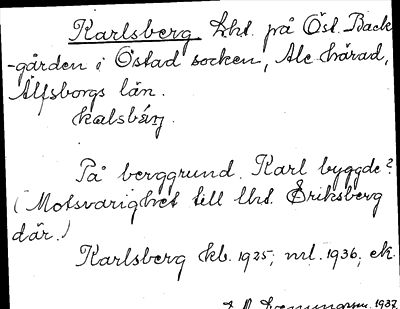 Karlsberg Lht. på Öst. Back-
-gården i Östad socken, Ale härad,
Älfsborgs län.
kalsbärj.
På berggrund. Karl byggde?
(Motsvarighet till lht. Eriksberg
där.)
Karlsberg kb. 1925; mt. 1936; ek.
1937